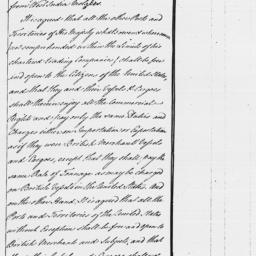 from West India Molasses.
It is agreed that all the other Ports and
Territories of His Majesty whatsoever
(not comprehended within the Limits of his
chartered trading Companies) shall be free
and open to the Citizens of the United States,
and that they and their Vessels & Cargoes
shall therein enjoy all the Commercial
Rights and pay only the same Duties and
Charges either on Importation or Exportation
as if they were British Merchant Vessels
and Cargoes, except that they shall pay the
same Rate of Tonnage as may be charged
on British Vessels in the United States. And
on the other Hand, It is agreed that all the
Ports and Territories of the United States
without Exception shall be free and open to
British Merchants and Subjects, and that